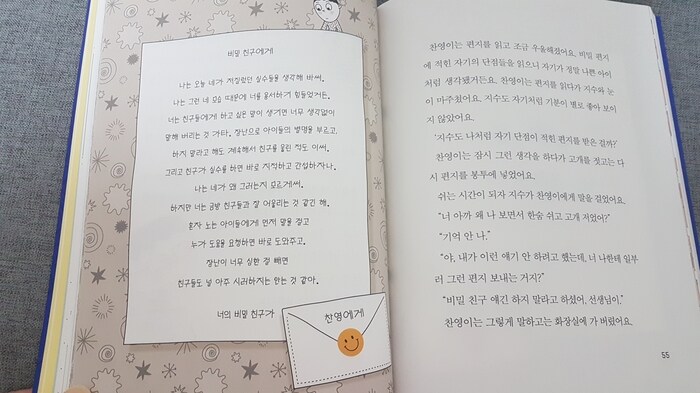 비밀 친구에게
나는 오늘 네가 저질렀던 실수들을 생각해 봐써.
나는 그런 네 모습 때문에 너를 용서하기 힘들었거든.
너는 친구들에게 하고 싶은 말이 생기면 너무 생각없이
말해 버리는 것 가타. 장난으로 아이들의 별명을 부르고,
하지 말라고 해도 계속해서 친구를 울린 적도 이써.
그리고 친구가 실수를 하면 바로 지적하고 간섭하자나.
나는 네가 왜 그러는지 모르게써.
하지만 너는 금방 친구들과 잘 어울리는 것 같긴 해.
혼자 노는 아이들에게 먼저 말을 걸고
누가 도움을 요청하면 바로 도와주고.
장난이 너무 심한 걸 빼면
친구들도 널 아주 시러하지는 안는 것 같아.
너의 비밀 친구가
찬영에게
찬영이는 편지를 읽고 조금 우울해졌어요. 비밀 편지
에 적힌 자기의 단점들을 읽으니 자기가 정말 나쁜 아이
처럼 생각됐거든요. 찬영이는 편지를 읽다가 지수와 눈
이 마주쳤어요. 지수도 자기처럼 기분이 별로 좋아 보이
지 않았어요.
‘지수도 나처럼 자기 단점이 적힌 편지를 받은 걸까?’
찬영이는 잠시 그런 생각을 하다가 고개를 젓고는 다
시 편지를 봉투에 넣었어요.
쉬는 시간이 되자 지수가 찬영이에게 말을 걸었어요.
“너 아까 왜 나 보면서 한숨 쉬고 고개 저었어?”
“기억 안 나.”
“야, 내가 이런 얘기 안 하려고 했는데, 너 나한테 일부
러 그런 편지 보내는 거지?”
“비밀 친구 얘긴 하지 말라고 하셨어, 선생님이.”
찬영이는 그렇게 말하고는 화장실에 가 버렸어요.
55